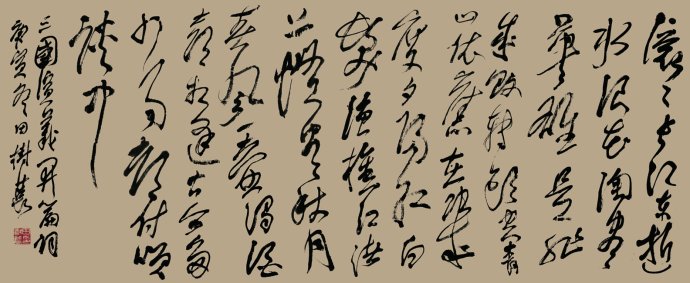 滚〻长江东逝
水浪花淘尽
英雄是非
成败转头空青
山依旧在几
度夕阳红白
发渔樵江渚
上惯看秋月
春风一壶浊酒
喜相逢古今多
少事都付笑
谈中
三國演義開篇詞
庚寅冬田樹萇